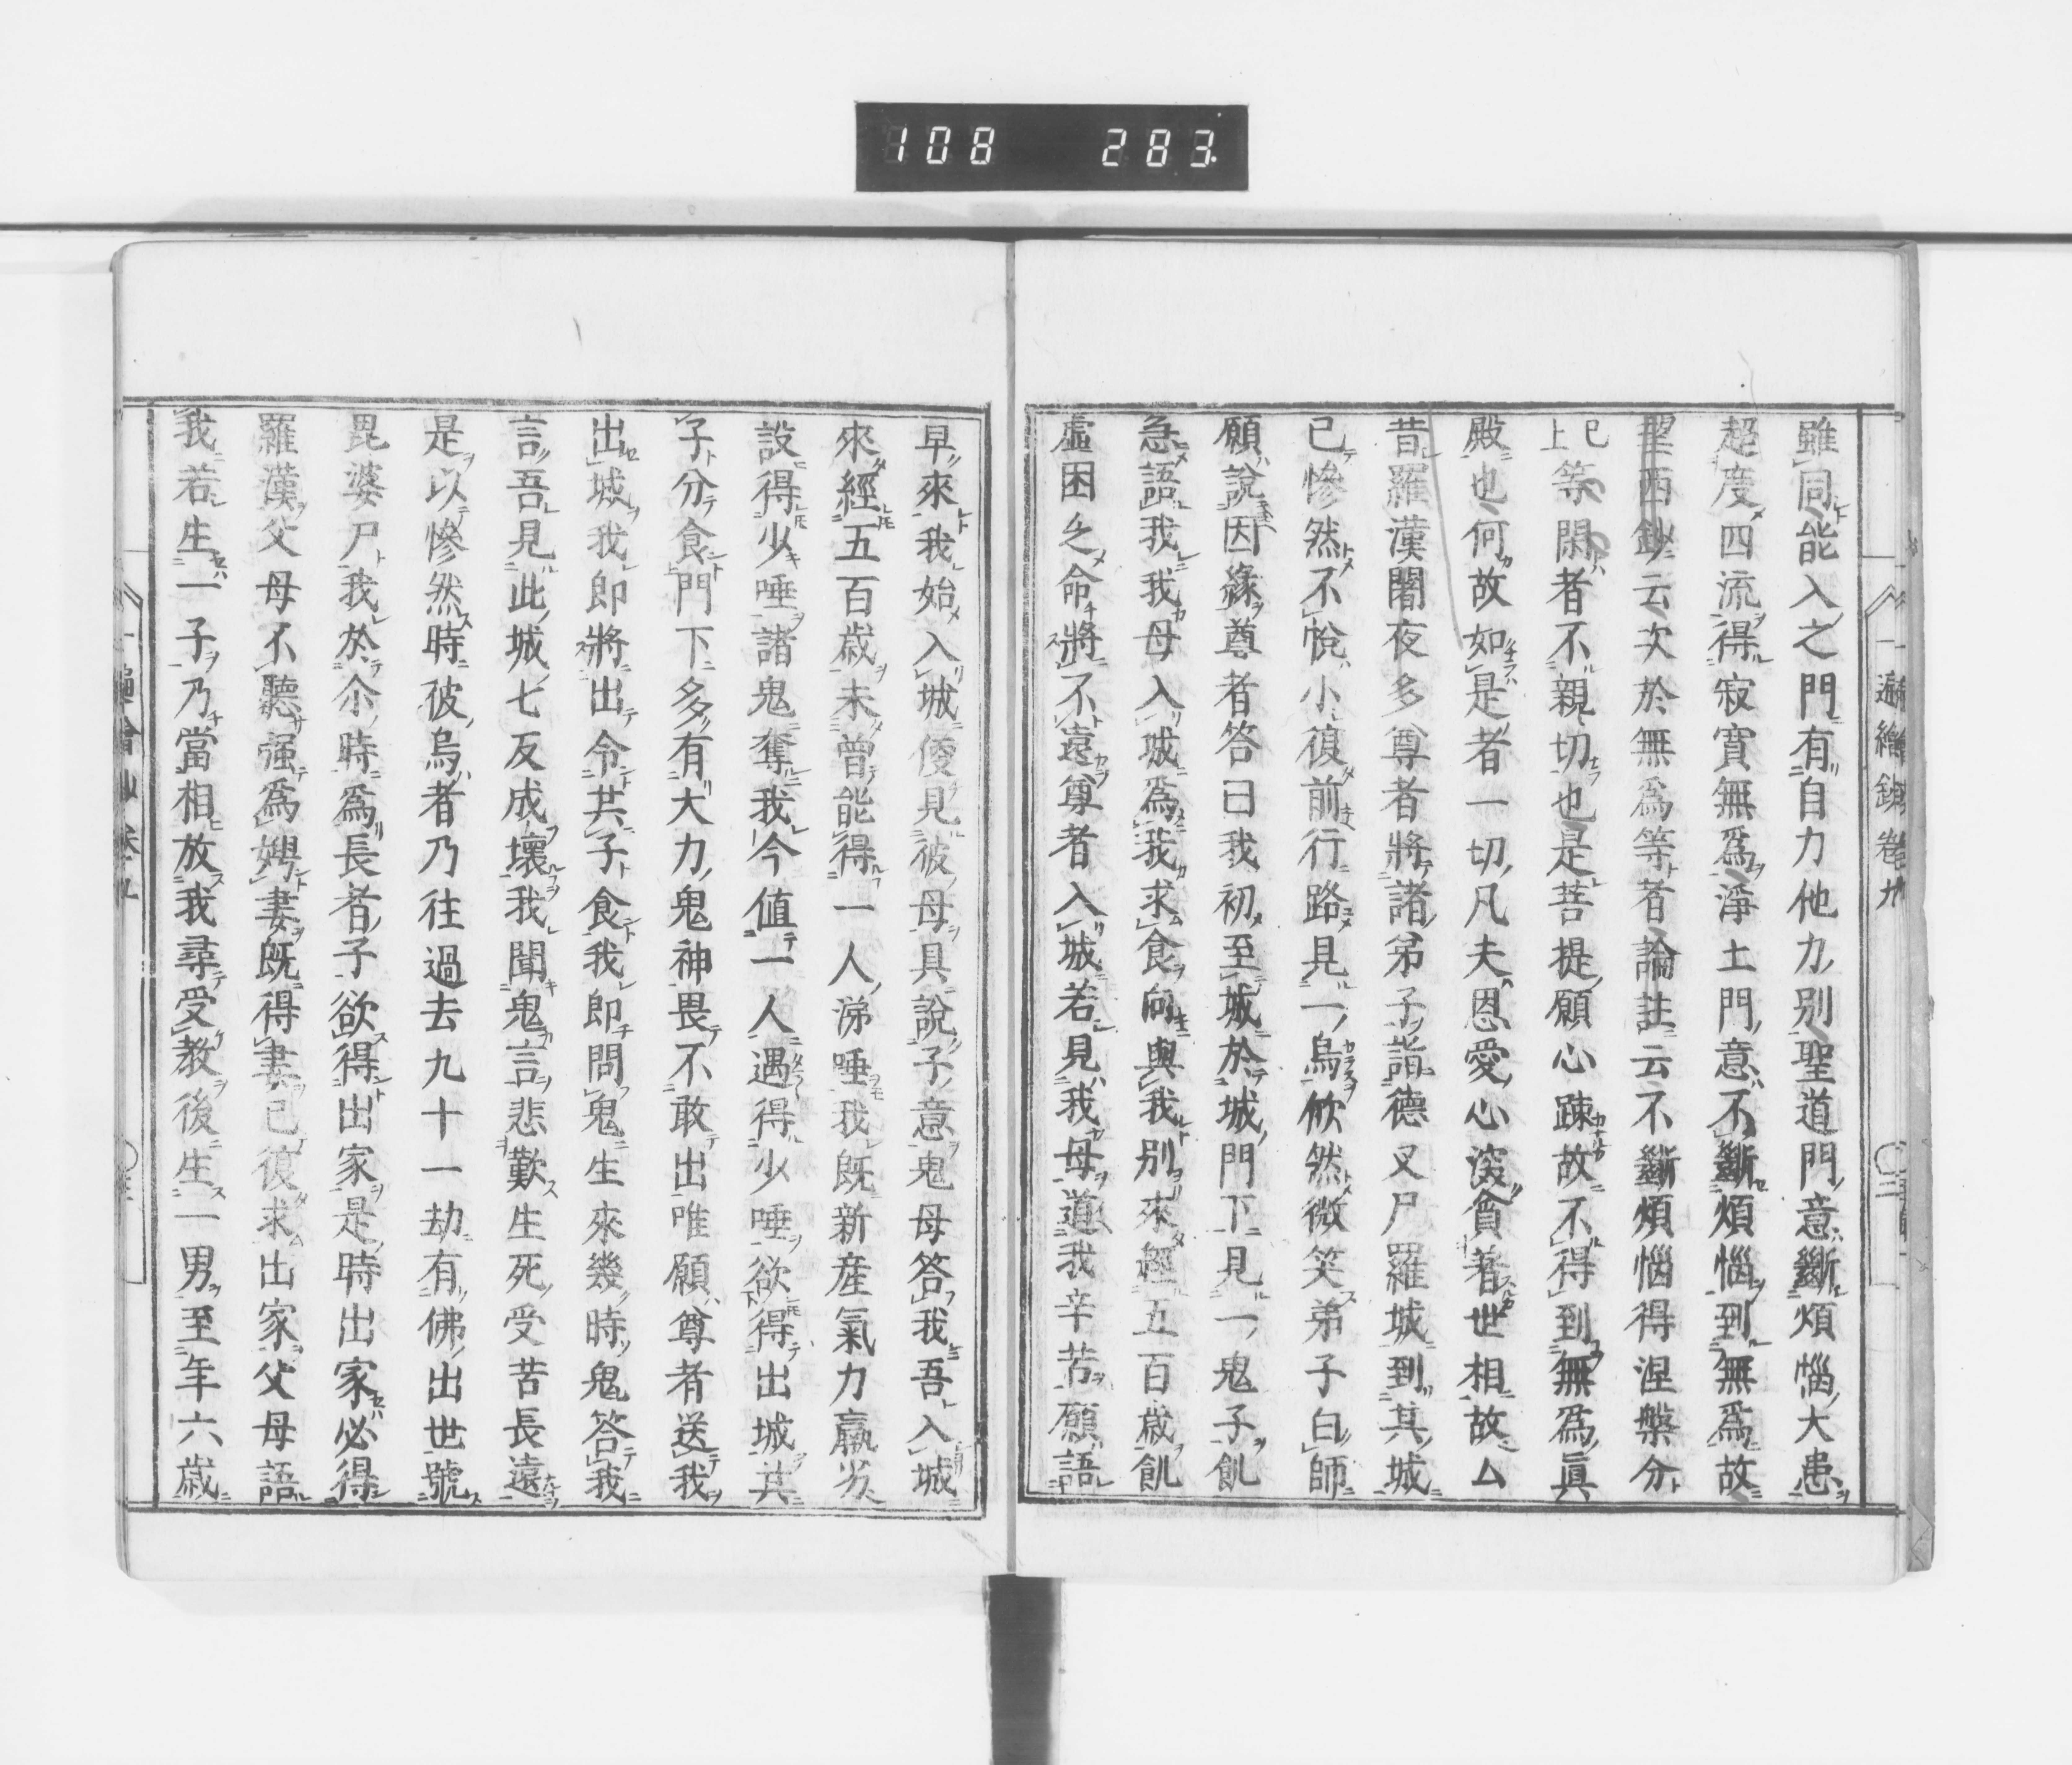 108 283
一遍繪鈔卷九
雖同能入之門有自力他力別聖道門意斷煩惱大患
超度四流得寂寞無爲淨土門意不斷煩惱到無爲故
望西鈔云次於無爲等者論註云不斷煩惱得涅槃分
已上等閑者不親切也是菩提願心疎故不得到無爲眞
殿也何故如是者一切凡夫恩愛心深貪著世相故ム
昔羅漢闍夜多尊者將諸弟子詣德叉尸羅城到其城
已慘然不悅小復前行路見一烏欣然微笑弟子白師
願說因緣尊者答曰我初至城於城門下見一鬼子飢
急語我我母入城爲我求食向與我別來經五百歲飢
虛困乏命將不遠尊者入城若見我母道我辛苦願語
早來我始入城復見彼母具說子意鬼母答我吾入城
來經五百歲未曾能得一人涕唾我既新產氣力羸劣
設得少唾諸鬼奪我今值一人遇得少唾欲得出城共
子分食門下多有大力鬼神畏不敢出唯願尊者送我
出城我即將出令共子食我即問鬼生來幾時鬼答我
言吾見此城七反成壞我聞鬼言悲歎生死受苦長遠
是以慘然時彼烏者乃往過去九十一劫有佛出世號
毘婆尸我於尒時爲長者子欲得出家是時出家必得
羅漢父母不聽强爲娉妻既得妻已復求出家父母語
我若生一子乃當相放我尋受教後生一男至年六歲